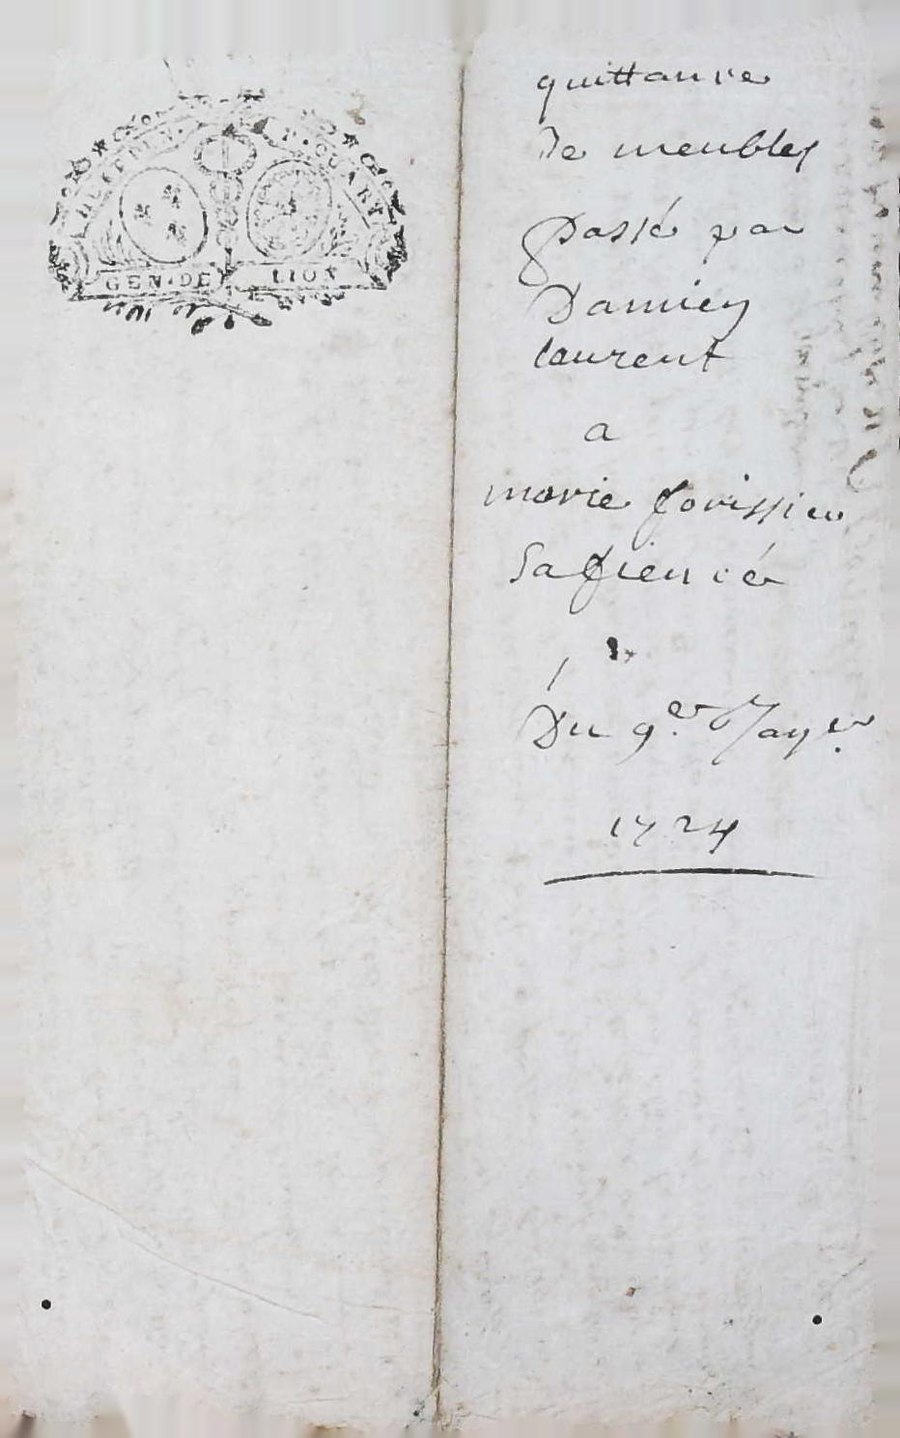 GEN·DE LION
quittance
de meubles
passé par
Damien
laurent
a
marie forissier
sa fiencé
Du 9.er Jan.er
1724